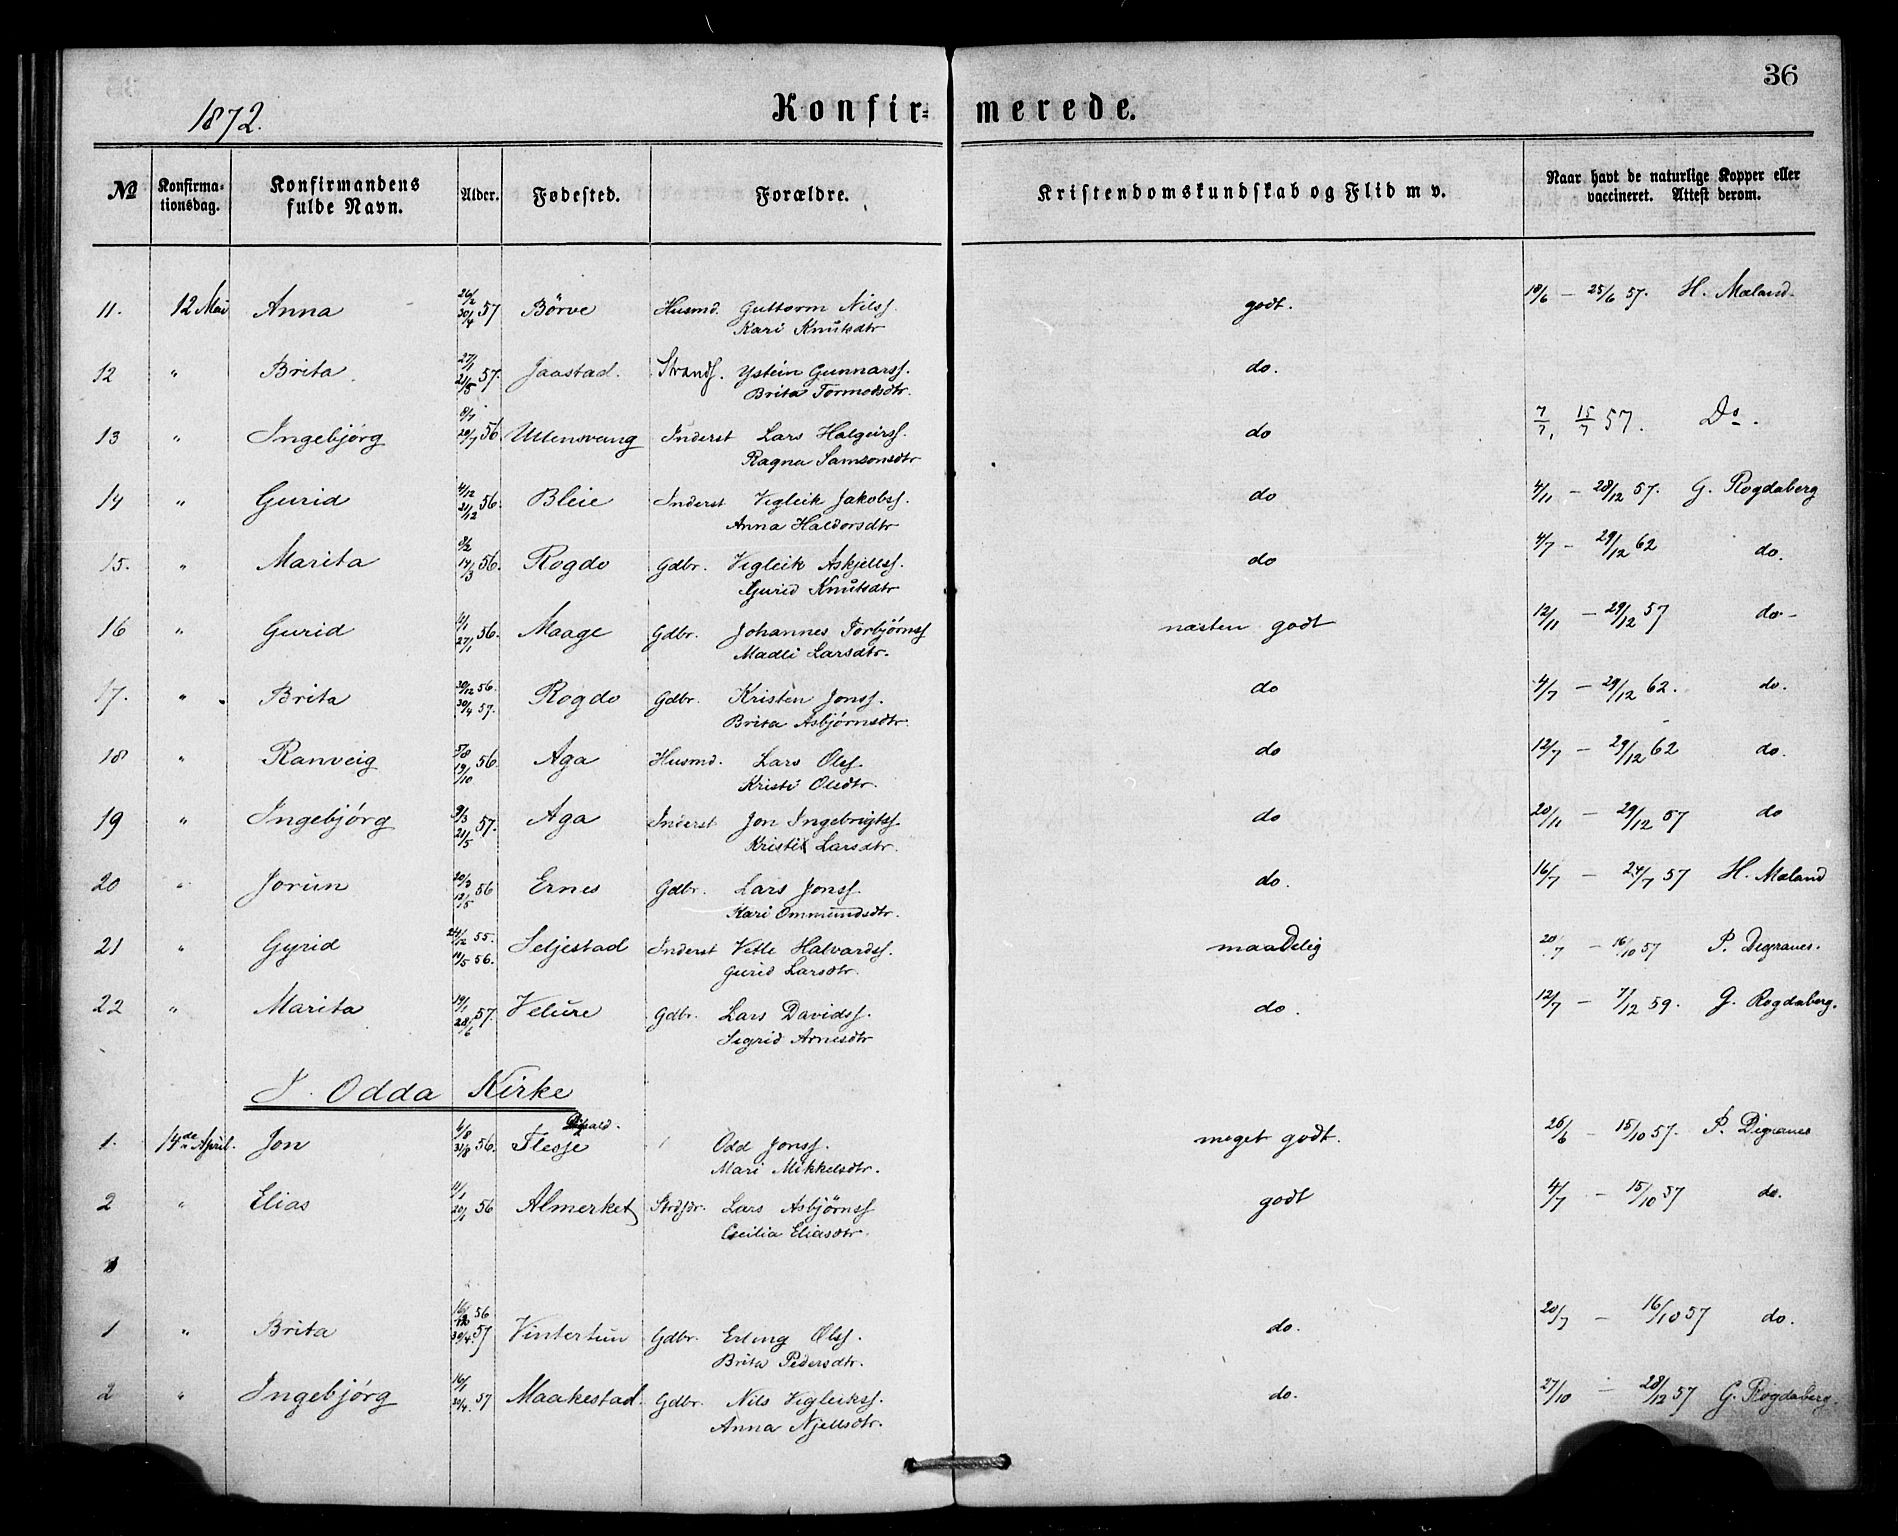 36
1872.
Konfir= merede.
№ Konfirma-tionsdag. Konfirmandens fulde Navn. Alder. Fødested. Forældre. Kristendomskundskab og Flid m v. Naar havt de naturlige Kopper eller vaccineret. Attest derom.
11. 12 Mai Anna 26/2 30/4 57 Börve Husmd. Guttorm Nilss. godt. 18/6 — 25/6 57. H. Mæland.
Kari Knutsdtr
12 " Brita 27/1 21/5 57. Jaastad. Strands. Ystein Gunnarss. do.
Brita Tormodsdtr.
13 " Ingebjørg 8/7 20/7 56 Ullensvang Inderst Lars Halgeirss. do 7/7, 15/7 57. Do.
Ragna Samsonsdtr
14 " Gurid 4/12 21/12 56. Bleie Inderst Vigleik Jakobss. do 4/11 — 28/12 57. G. Rogdaberg
Anna Haldorsdtr
15. " Marita 8/2 14/3 56. Rogde Gdbr. Vigleik Askjellss. do 4/7 — 29/12 62 do.
Gurid Knutsdtr
16 " Gurid 4/1 27/1 56. Maage Gdbr. Johannes Torbjørnss næsten godt 12/11 — 29/12 57 do-
Madli Larsdtr.
17. " Brita 30/12 56. 30/4 57. Rogde Gdbr. Kristen Jonss. do 4/7 — 29/12 62. do.
Brita Asbjørnsdtr.
18 " Ranveig 5/8 19/10 56. Aga Husmd. Lars Olss. do 12/7 — 29/12 62 do.
Kristi Olsdtr.
19 " Ingebjørg 9/3 21/5 57. Aga Inderst Jon Ingebrigtss do 20/11 — 29/12 57 do
Kristi Larsdtr.
20 " Jorun 20/3 12/5 56 Ernes Gdbr. Lars Jonss. do. 16/7 — 24/7 57 H. Mæland
Kari Ommundsdtr.
21 " Gyrid 24/12 55. 18/5 56. Seljestad Inderst Vetle Halvardss. maadelig 20/7 — 16/10 57 P. Digranes.
Gurid Larsdtr.
22 " Marita 19/1 28/6 57. Velure Gdbr. Lars Davidss. do. 12/7 — 7/12 59. G. Rogdaberg.
Sigrid Arnesdtr
I Odda Kirke
1. 14de April. Jon 4/8 31/8 56. Flesje Odd Jonss. meget godt. 26/6 — 15/10 57. P. Digranes
Mari Mikkelsdtr.
2 " Elias 11/1 20/1 56 Almerket Strdsdr. Lars Asbjörnss godt 4/7 — 15/10 57 do.
Cecilia Eliasdtr.
1 " Brita 56 30/4 57 Vintertun Gdbr. Erling Olss. do. 20/7 — 16/10 57 do.
Brita Pedersdtr.
2 " Ingebjørg 16/1 20/4 57 Maakestad. Gdbr. Nils Vigleikss. do. 27/10 — 28/12 57 G. Rogdaberg.
Anna Njellsdtr.